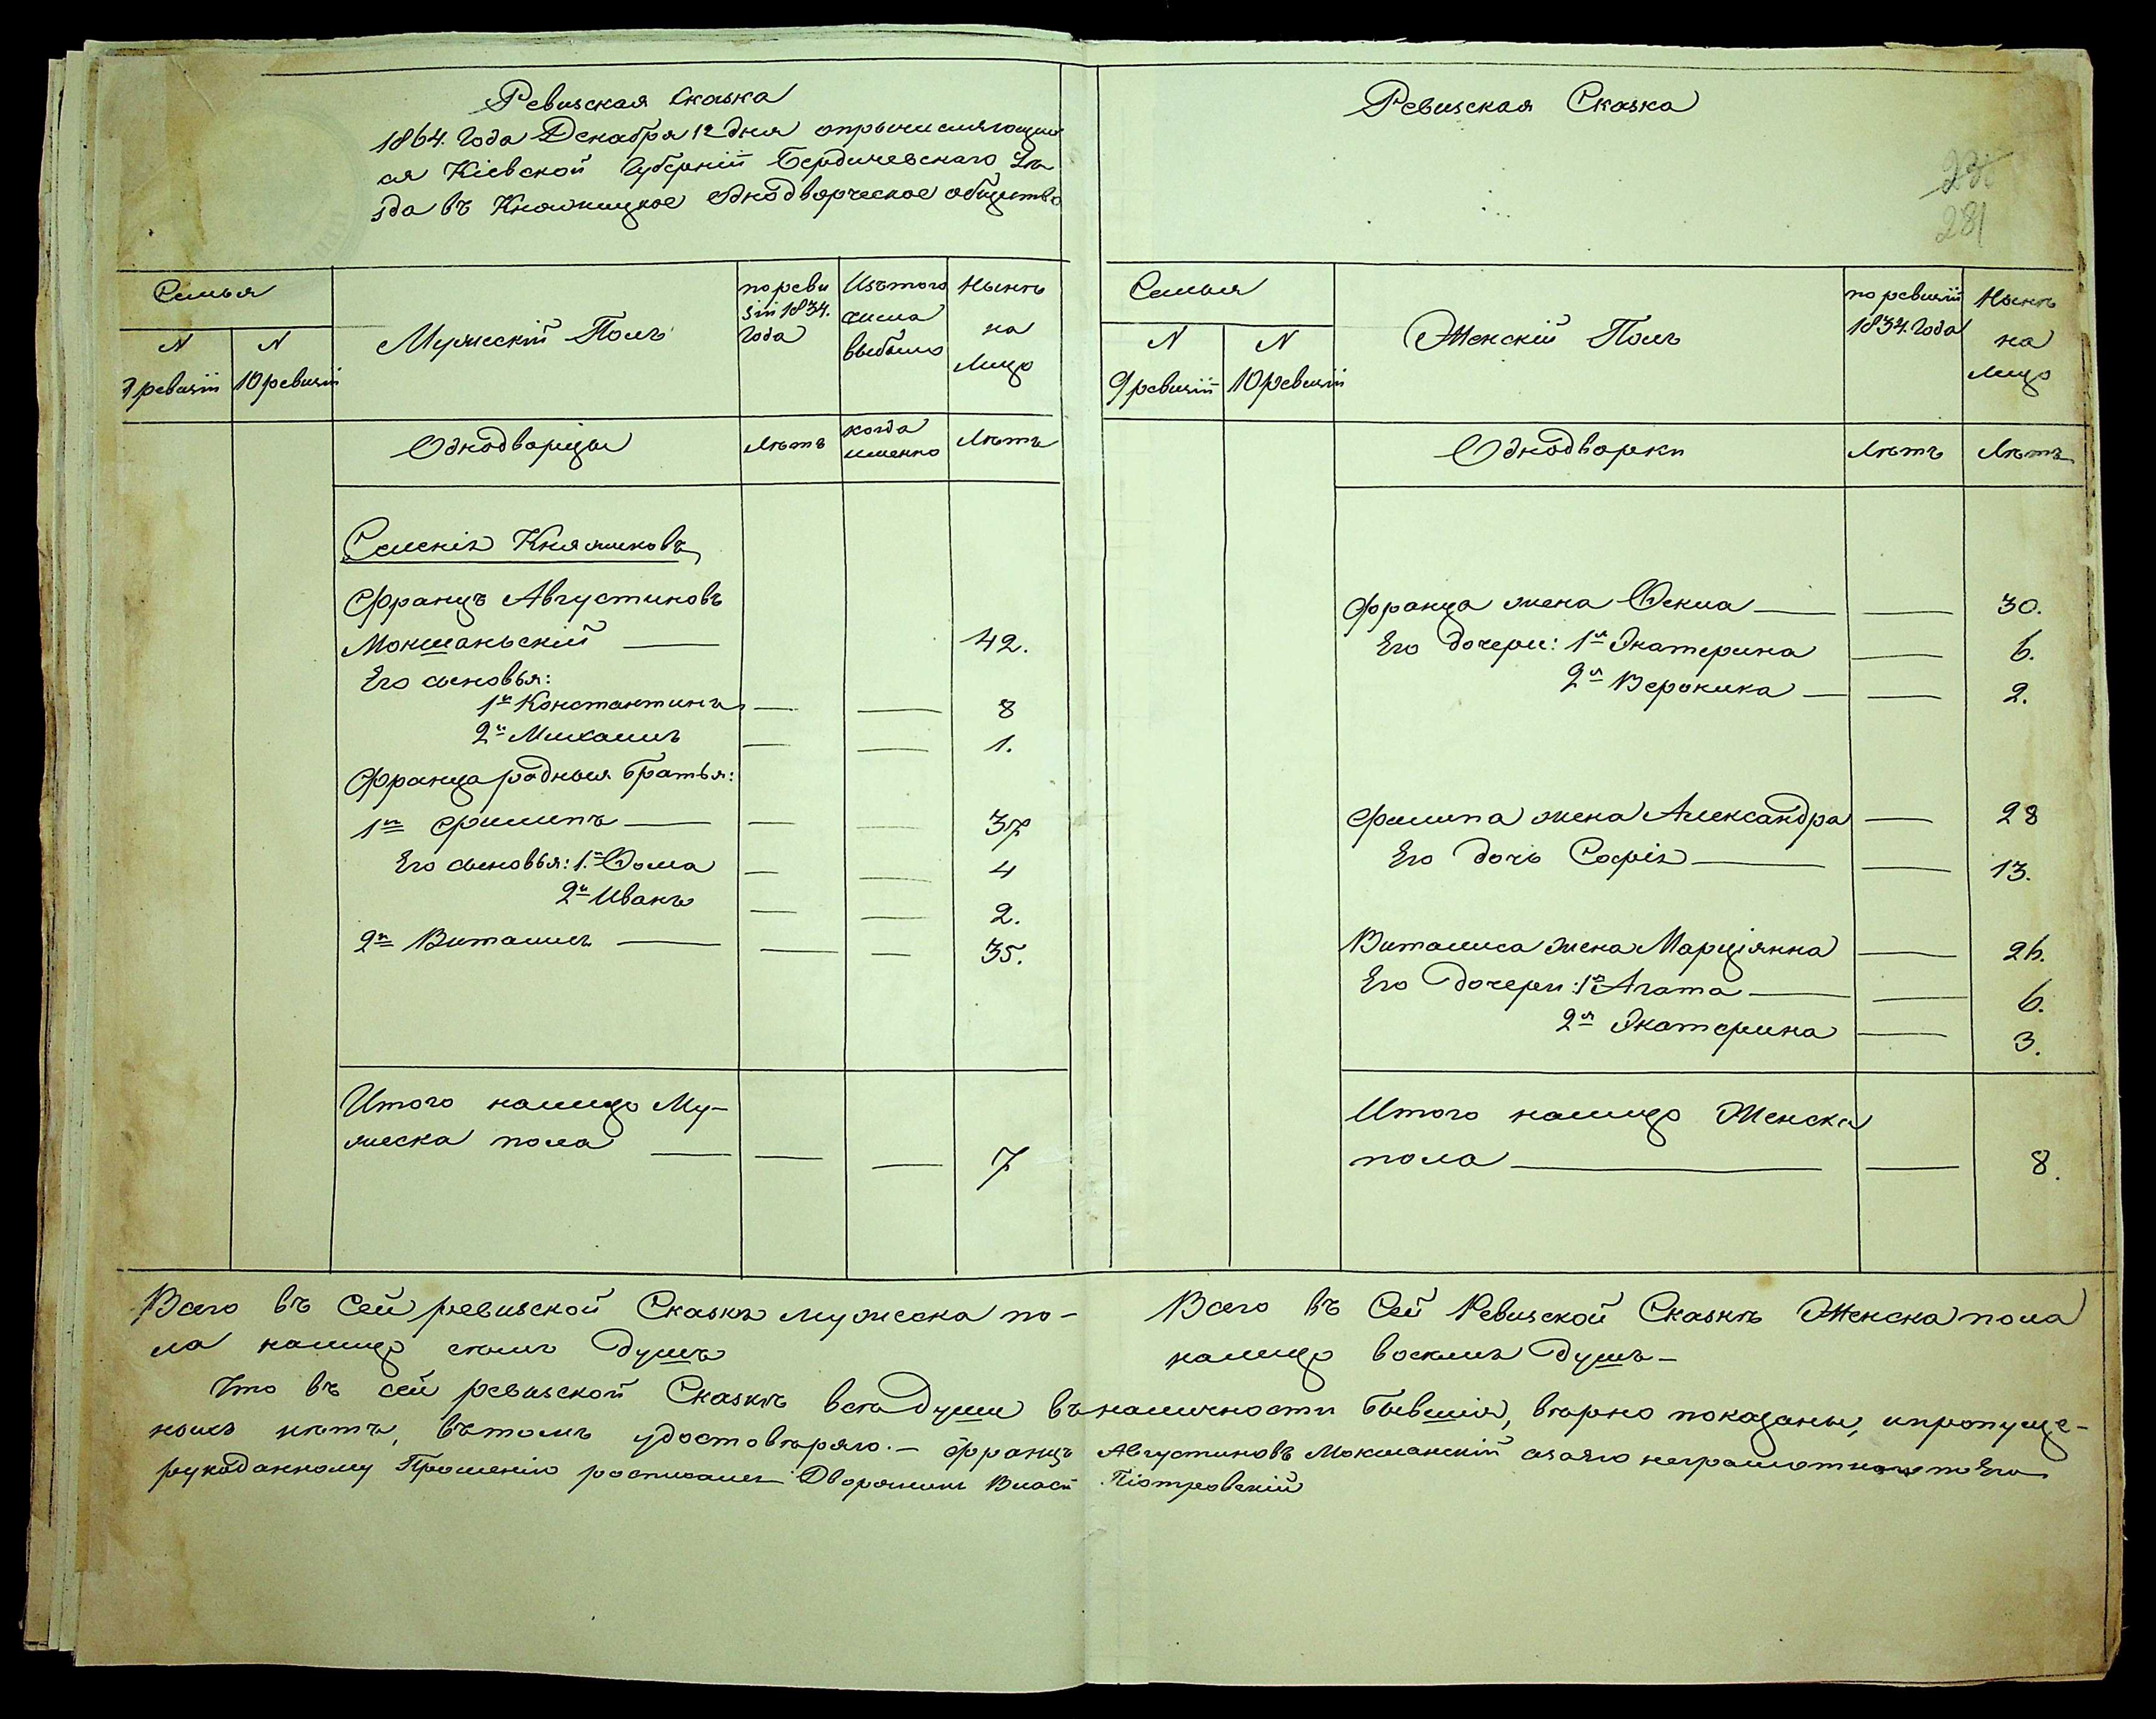 Ревизская Сказка
1864. Года Декабря 12 дня опричисляющих
ся Кіевской Губерніи Бердичевскаго Уѣ
зда въ Княжицкое Однодворческое общество
Семья
N
9 ревизіи
N
10 ревизіи
Мужескій Полъ
по реви
зіи 1834.
года
Изътого
числа
выбыло
Нынѣ
на
лицо
Однодворцы
Лѣтъ
когда
именно
Лѣтъ
Селенія Княжиковъ
Францъ Августиновъ
Мокшаньскій — 42.
Его сыновья:
1й Константинъ — — 8
2й Михаилъ — — 1.
Франца родныя братья:
1й Филипъ — — — 37
Его сыновья: 1й Фома — — 4
2й Иванъ — — 2.
2й Виталисъ — — — 35.
Итого налицо Му-
жеска пола — — — 7
Всего въ сей ревизской Сказкѣ мужеска по-
ла налицо семь душъ
Ревизская Сказка
281
Семья
N
9 ревизіи
N
10 ревизіи
Женскій Полъ
по ревизіи
1834. Года
Нынѣ
на
лицо
Однодворки
Лѣтъ
Лѣтъ
Франца жена Фекла — — 30.
Его дочери: 1я Екатерина — 6.
2я Вероника — — 2.
Филипа жена Александра — 28
Его дочь Софія — — 13.
Виталиса жена Марціянна — 26.
Его дочери: 1я Агата — — 6.
2я Екатерина — 3.
Итого налицо Женска
пола — — 8.
Всего въ Сей Ревизской Сказкѣ Женска пола
налицо восемь душъ —
Что въ сей ревизской Сказкѣ всѣ души въ наличности бывшія, вѣрно показаны, и пропуще-
ныхъ нѣтъ, въ томъ удостовѣряю. — Францъ Августиновъ Мокшанскій а за его неграмотного по Его
рукоданному Прошенію росписался Дворянинъ Піотровскій